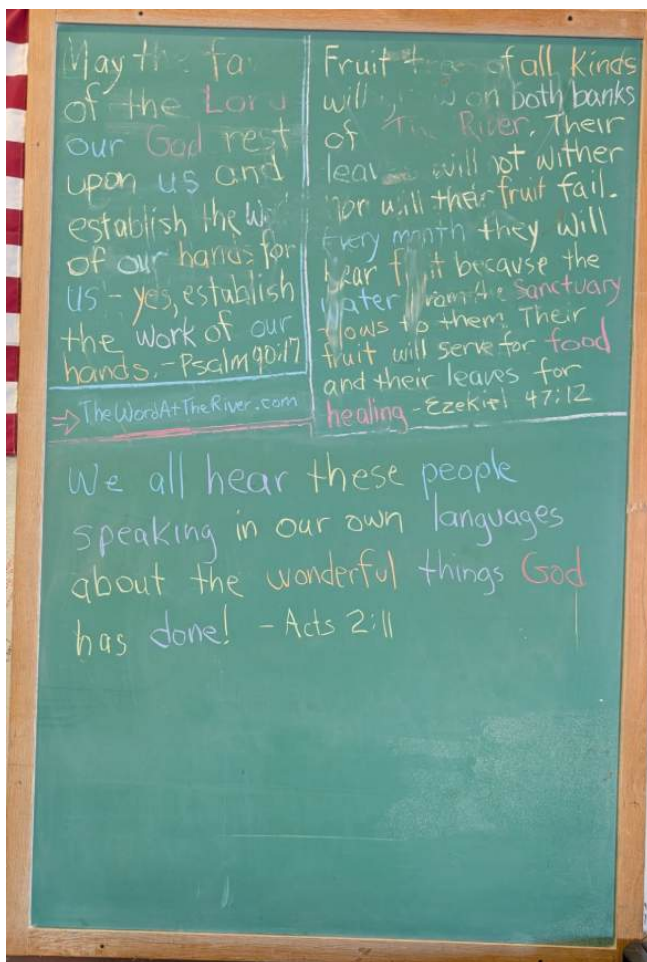 May the fa
of the Lord
our God rest
upon us and
establish the wo
of our hands for
us - yes, establish
the work of our
hands. - Psalm 90:17
TheWordAtTheRiver.com
Fruit of all kinds
will on both banks
of The River. Their
leaves will not wither
nor will their fruit fail.
Every month they will
bear fruit because the
water from the sanctuary
flows to them. Their
fruit will serve for food
and their leaves for
healing - Ezekiel 47:12
We all hear these people
speaking in our own languages
about the wonderful things God
has done! - Acts 2:11